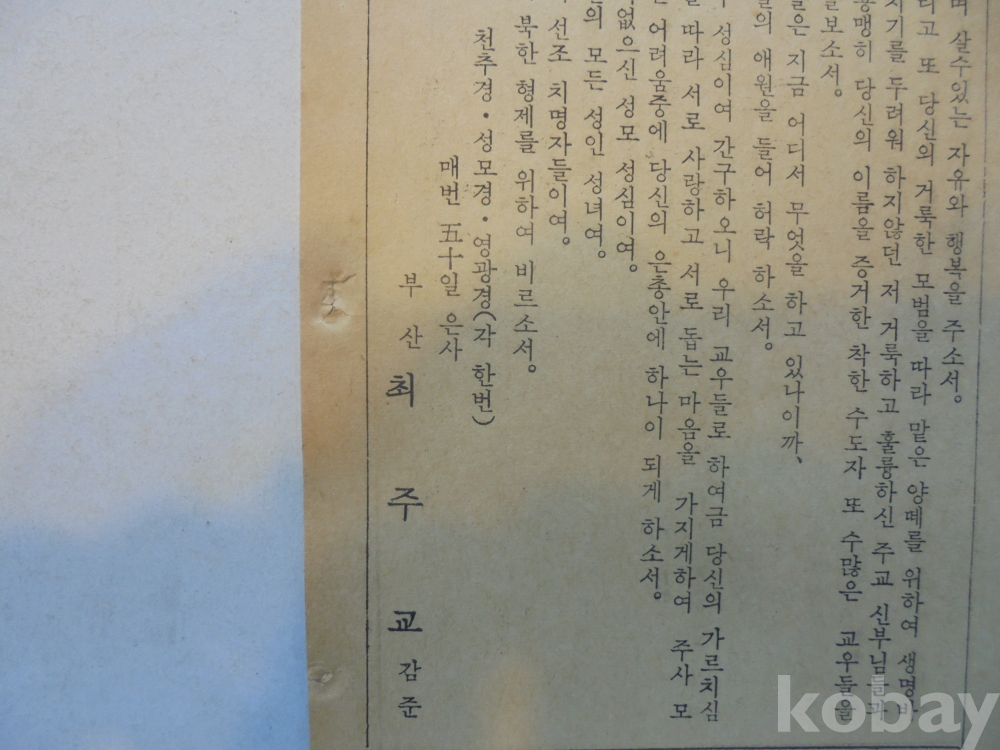 며 살수있는 자유와 행복을 주소서。
리고 또 당신의 거룩한 모범을 따라 맡은 양떼를 위하여 생명바
치기를 두려워 하지않던 저 거룩하고 훌륭하신 주교 신부님들과
용맹히 당신의 이름을 증거한 착한 수도자 또 수많은 교우들을
보소서。
들은 지금 어디서 무엇을 하고 있나이까、
들의 애원을 들어 허락 하소서。
성심이여 간구하오니 우리 교우들로 하여금 당신의 가르치심
따라 서로 사랑하고 서로 돕는 마음을 가지게하여 주사 모
어려움중에 당신의 은총안에 하나이 되게 하소서。
없으신 성모 성심이여。
의 모든 성인 성녀여。
선조 치명자들이여。
북한 형제를 위하여 비르소서。
천추경・성모경・영광경(각 한번)
매번 五十일 은사
부산 최 주교 감준
kobay